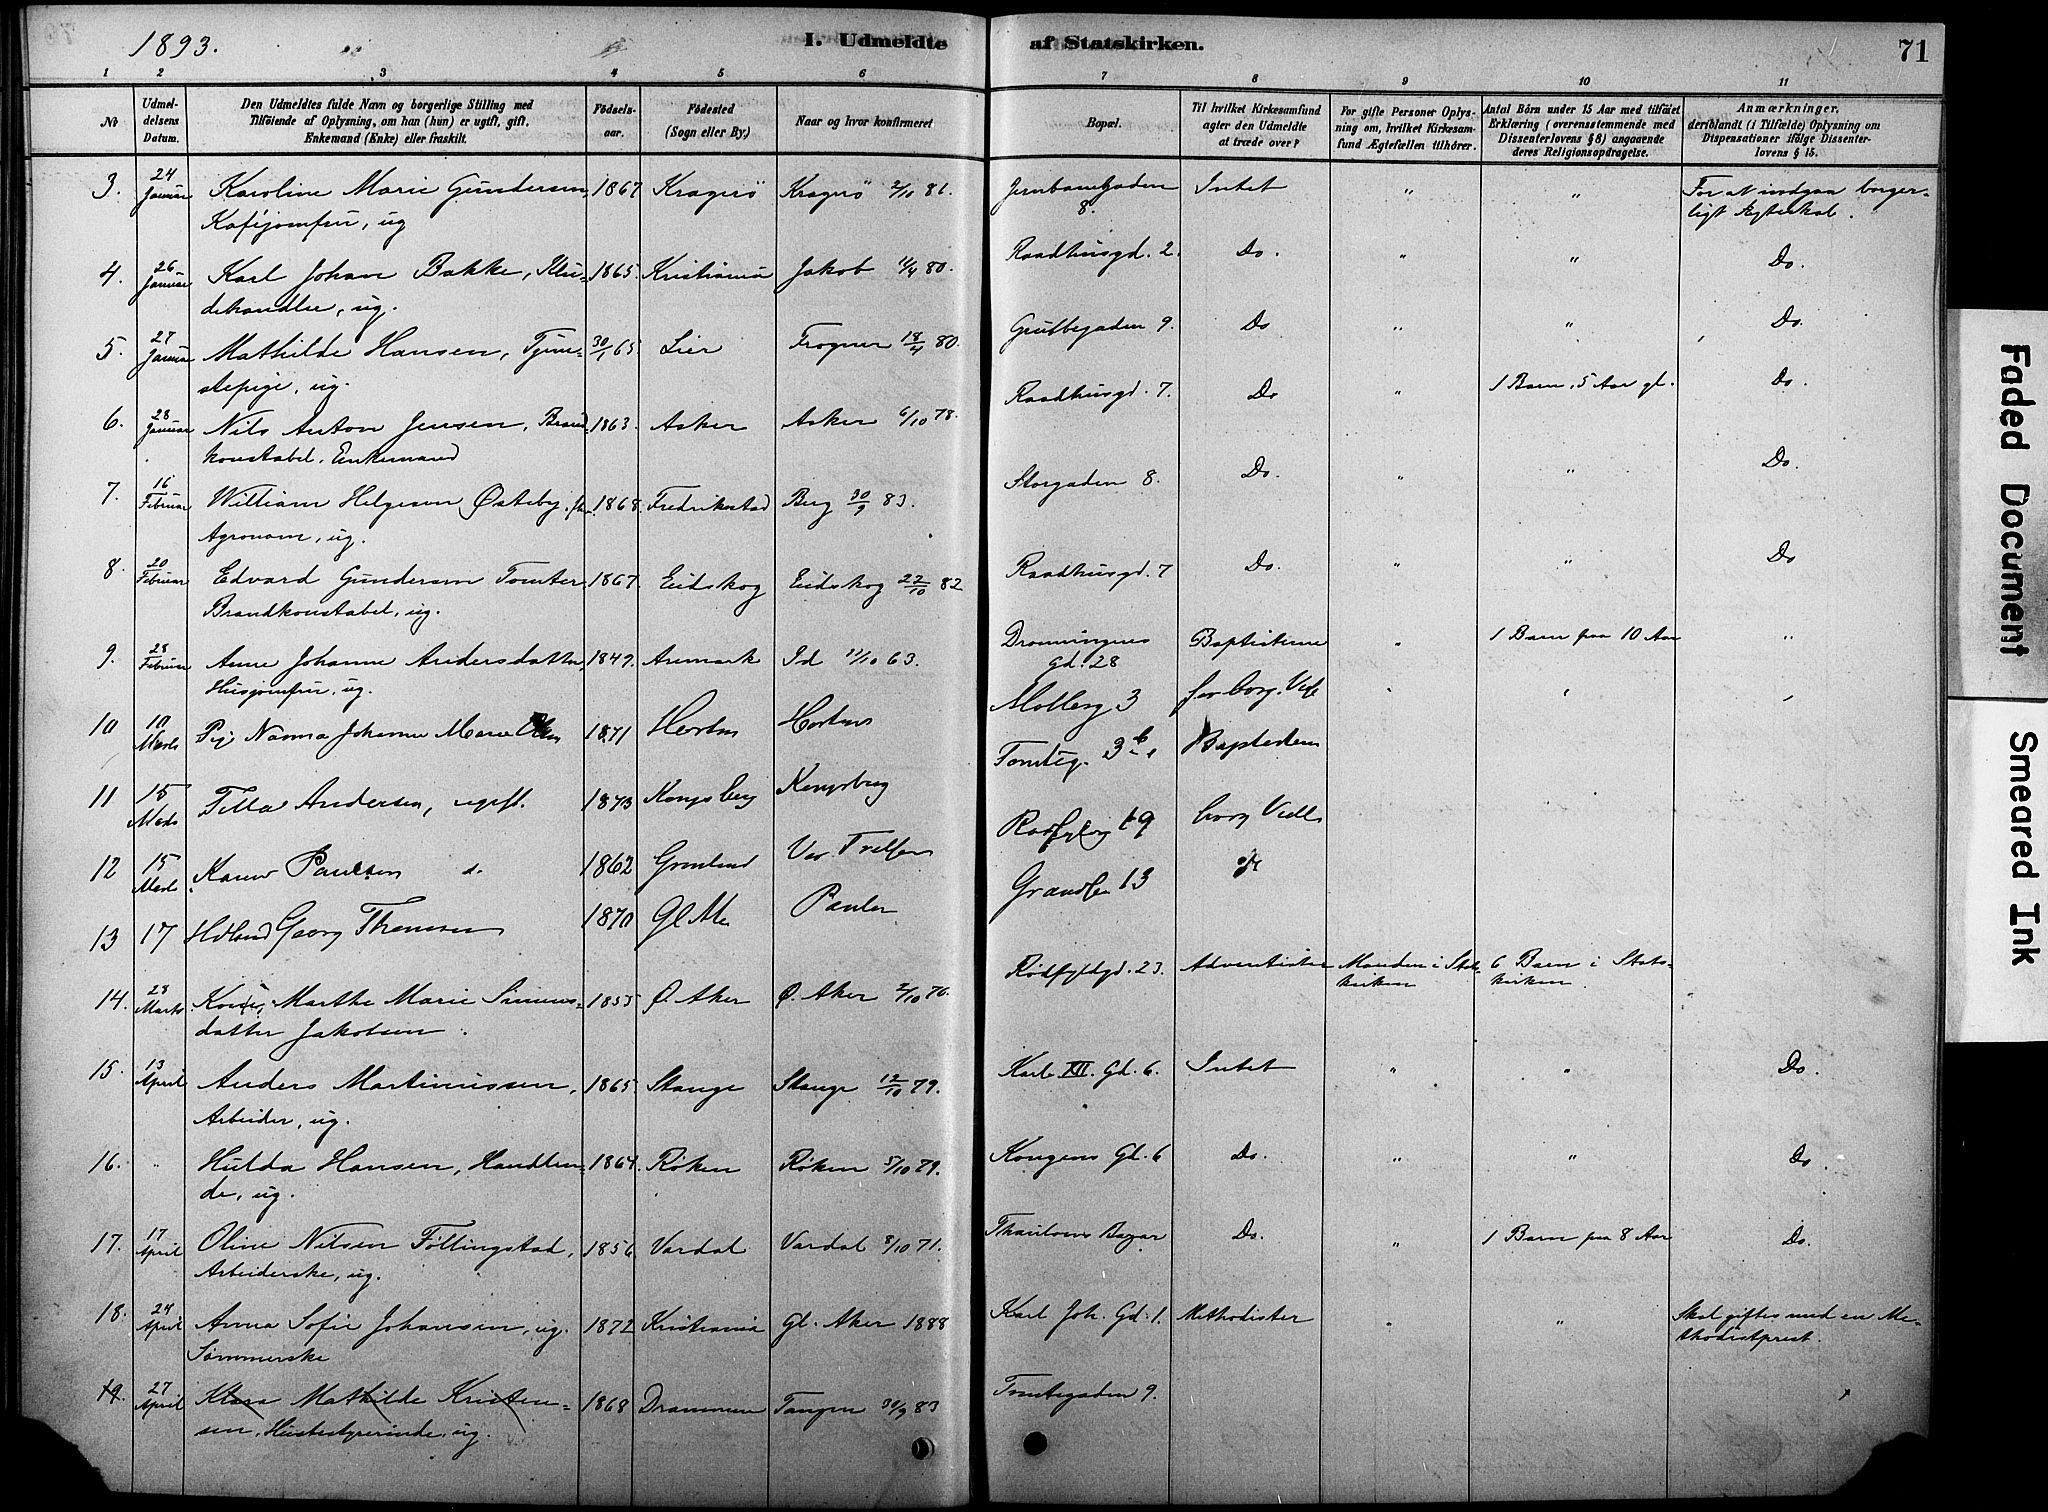 1893.
I. Udmeldte af Statskirken.
71
1 2 3 4 5 6 7 8 9 10 11
No
Udmel-
delsens
Datum.
Den Udmeldtes fulde Navn og borgerlige Stilling med
Tilföiende af Oplysning, om han (hun) er ugift, gift,
Enkemand (Enke) eller fraskilt.
Födsels-
aar.
Födested
(Sogn eller By)
Naar og hvor konfirmeret
Bopæl.
Til hvilket Kirkesamfund
agter den Udmeldte
at træde over?
For gifte Personer Oplys-
ning om, hvilket Kirkesam-
fund Ægtefællen tilhörer.
Antal Börn under 15 Aar med tilföiet
Erklæring (overensstemmende med
Dissenterlovens § 8) angaaende
deres Religionsopdragelse.
Anmærkninger,
deriblandt (i Tilfælde) Oplysning om
Dispensationer ifölge Dissenter-
lovens § 15.
3. 24 Januar Karoline Marie Gundersen, 1867 Kragerö Kragerö 2/10 81. Jernbanegaden Intet " " For at indgaa borger-
Kaféjomfru, ug 8. ligt Ægteskab.
4. 26 Januar Karl Johan Bakke, Klu- 1865. Kristiania Jakob 11/4 80. Raadhusgd. 2. Do. " " Do.
dehandler, ug.
5. 27 Januar Mathilde Hansen, Tjene- 30/1 65. Lier Frogner 18/4 80. Grubbegaden 9. Do " " Do.
stepige, ug.
6. 28 Januar Nils Anton Jensen, Brand- 1863. Asker Asker 6/10 78. Raadhusgd. 7. Do " 1 Barn, 5 Aar gl. Do.
konstabel. Enkemand
7. 16 Februar William Helgesen Østeby, 1868. Fredrikstad Berg 30/9 83. Storgaden 8. Do. " " Do.
Agronom, ug.
8. 20 Februar Edvard Gundersen Tomter 1867. Eidskog Eidskog 22/10 82 Raadhusgd. 7 Do. " " Do
Brandkonstabel, ug.
9. 28 Februar Anne Johanne Andersdatter, 1849. Aremark Id 11/10 63. Dronningens Baptisterne " 1 Barn paa 10 Aar "
Husjomfru, ug. Gd. 28
10 10 Marts Pig Nanna Johanne Marie 1871 Horten Horten Mollerg 3 for borg. Vielse
11 15 Marts Tilla Andersen, ugift. 1873 Kongsberg Kongsberg Tomteg. 3 b. Baptisterne
12 15 Marts Paulsen d. 1862 Grønland Vor Frelsers 19 borg Vielse
13 17 Georg Thomsen 1870 Gl. Paulus 13
14. 28 Marts Kone, Marthe Marie Simens- 1855 Ø. Aker Ø. Aker 2/10 70. Rødfyldgd. 23. Adventister Manden i Stats- 6 Barn i Stats-
datter Jakobsen. kirken kirken.
15. 13 April Anders Martinussen, 1865. Stange Stange 12/10 79. Karl XII. Gd. 6. Intet " " Do.
Arbeider, ug.
16. " Hulda Hansen, Handlen- 1864. Røken Røken 5/10 79. Kongens Gd. 6 Do. " " Do.
de, ug.
17. 17 April Oline Nilsen Föllingstad, 1856 Vardal Vardal 8/10 71. Thaulows Bazar Do. " 1 Barn paa 8 Aar Do.
Arbeiderske, ug.
18. 24 April Anna Sofie Johansen, ug. 1872 Kristiania Gl. Aker 1888 Karl Joh. Gd. 1. Methodister " " Skal giftes med en Me-
Sömmerske thodistprest.
19. 27 April Klara Mathilde Kristen- 1868 Drammen Tangen 30/9 83 Tomtegaden 9.
sen, Husbestyrerinde, ug.
Faded Document
Smeared Ink